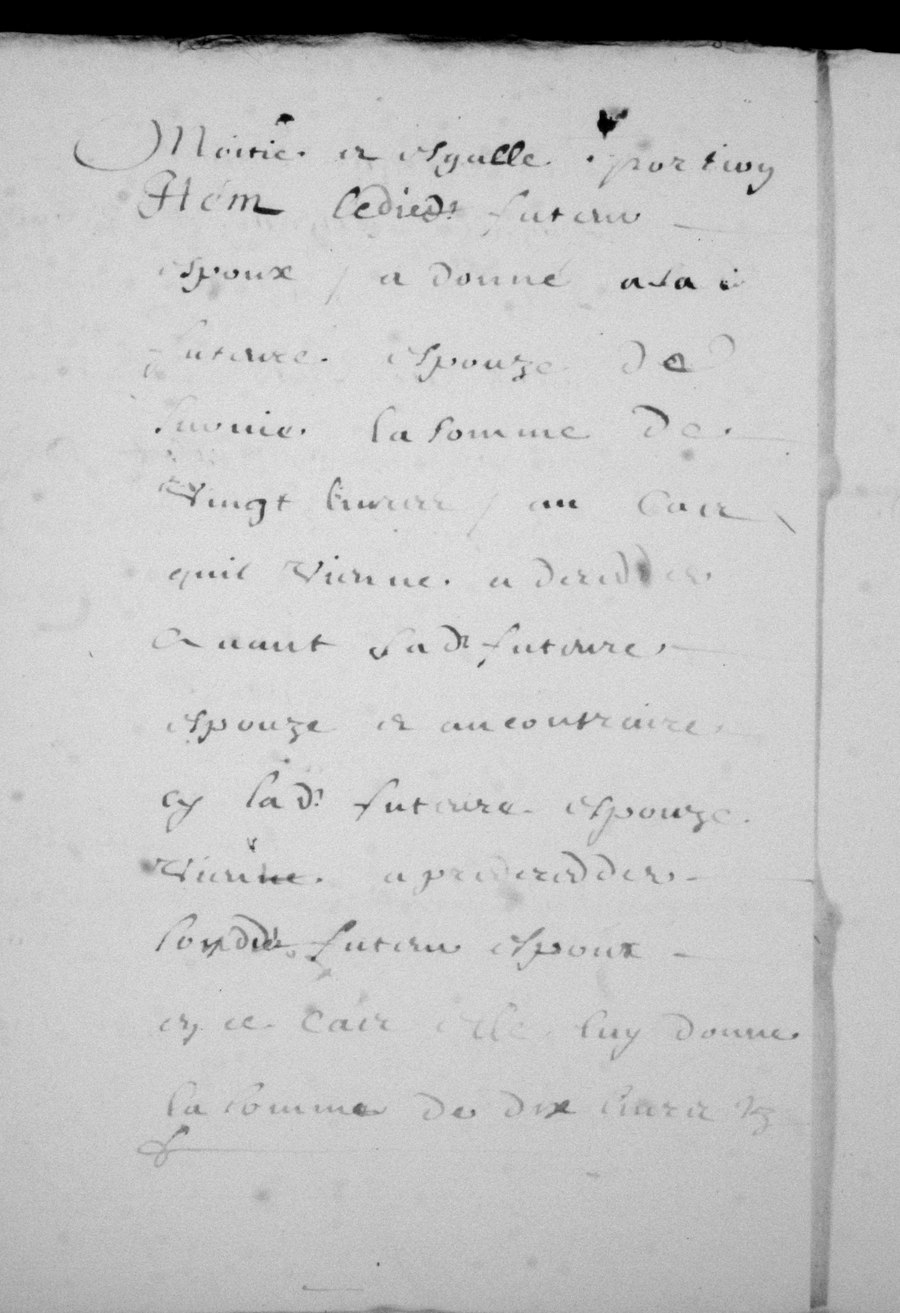 Moitié et esgalle portion
Item ledict futeur
espoux / a donné a sa
futeure espouze de
survie la somme de
Vingt livres / au cas
quil vienne a deceder
avant sa dt futeure
espouze et au contraire
cy lad futeure espouze
vienne a predecedder
sondit futeur espoux
en ce cas elle luy donne
la somme de dix livres